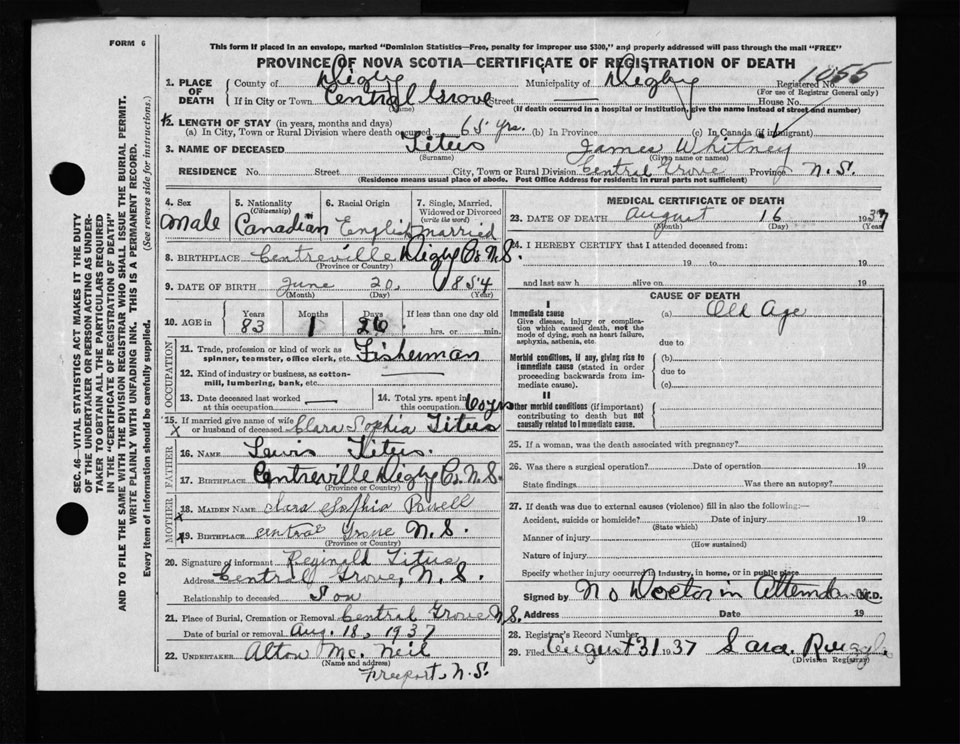 FORM 6
This form if placed in an envelope, marked "Dominion Statistics—Free, penalty for improper use $300," and properly addressed will pass through the mail "FREE"
PROVINCE OF NOVA SCOTIA—CERTIFICATE OF REGISTRATION OF DEATH
1. PLACE OF DEATH
County of Digby Municipality of Digby Registered No. 1055
(For use of Registrar General only)
If in City or Town Central Grove Street House No.
(Name) (If death occurred in a hospital or institution, give the name instead of street and number)
2. LENGTH OF STAY (in years, months and days)
(a) In City, Town or Rural Division where death occured 65 yrs. (b) In Province (c) In Canada (if immigrant)
3. NAME OF DECEASED Titus James Whitney
(Surname) (Given name or names)
RESIDENCE No. Street City, Town or Rural Division Central Grove Province of N.S.
(Residence means usual place of abode. Post Office Address for residents in rural parts not sufficient)
4. Sex Male
5. Nationality (Citizenship) Canadian
6. Racial Origin English
7. Single, Married, Widowed or Divorced (write the word) married
8. BIRTHPLACE Centreville Digby Co. N.S.
(Province or Country)
9. DATE OF BIRTH June 20, 1854
(Month) (Day) (Year)
10. AGE in Years Months Days If less than one day old
83 1 26 hrs. or min.
OCCUPATION
11. Trade, profession or kind of work as spinner, teamster, office clerk, etc. Fisherman
12. Kind of industry or business, as cotton-mill, lumbering, bank, etc.
13. Date deceased last worked at this occupation —
14. Total yrs. spent in this occupation 60 yrs
15. If married give name of wife or husband of deceased Clara Sophia Titus
FATHER
16. NAME Lewis Titus.
17. BIRTHPLACE Centreville Digby Co. N.S.
(Province or Country)
MOTHER
18. MAIDEN NAME Clara Sophia Powell
19. BIRTHPLACE Central Grove N.S
(Province or Country)
20. Signature of informant Reginald Titus
Address Central Grove, N.S.
Relationship to deceased Son
21. Place of Burial, Cremation or Removal Central Grove N.S.
Date of burial or removal Aug. 18, 1937
22. UNDERTAKER Alton Mc. Neil
(Name and address)
Freeport, N.S.
MEDICAL CERTIFICATE OF DEATH
23. DATE OF DEATH August 16 1937
(Month) (Day) (Year)
24. I HEREBY CERTIFY that I attended deceased from:
19 to 19
and last saw h alive on 19
CAUSE OF DEATH
I
Immediate cause (a) Old Age
Give disease, injury or complication which caused death, not the mode of dying, such as heart failure, asphyxia, asthenia, etc.
due to
Morbid conditions, if any, giving rise to immediate cause (stated in order proceeding backwards from immediate cause).
(b)
due to
(c)
II
Other morbid conditions (if important) contributing to death but not causally related to immediate cause.
25. If a woman, was the death associated with pregnancy?
26. Was there a surgical operation? Date of operation 19
State findings Was there an autopsy?
27. If death was due to external causes (violence) fill in also the following:—
Accident, suicide or homicide? Date of injury 19
(State which)
Manner of injury
(How sustained)
Nature of injury
Specify whether injury occurred in industry, in home, or in public place
Signed by No Doctor in Attendance M.D.
Address Date 19
28. Registrar's Record Number
29. Filed August 31 1937 Sara
(Division Registrar)
SEC. 46—VITAL STATISTICS ACT MAKES IT THE DUTY
OF THE UNDERTAKER OR PERSON ACTING AS UNDER-
TAKER TO OBTAIN ALL THE PARTICULARS REQUIRED
IN THE "CERTIFICATE OF REGISTRATION OF DEATH"
AND TO FILE THE SAME WITH THE DIVISION REGISTRAR WHO SHALL ISSUE THE BURIAL PERMIT.
WRITE PLAINLY WITH UNFADING INK. THIS IS A PERMANENT RECORD.
Every item of information should be carefully supplied. (See reverse side for instructions.)